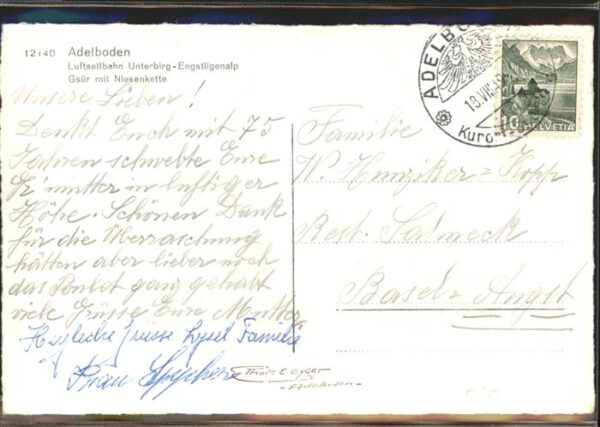 12140 Adelboden
Luftseilbahn Unterbirg-Engstligenalp
Gsür mit Niesenkette
Unsere Lieben!
Denkt Euch mit 75
Jahren schwebte Eure
Gr'mutter in luftiger
Höhe. Schönen Dank
für die Überraschung
hätten aber lieber noch
das Poulet ganz gehabt
viele Grüsse Eure Mutter
Herzliche Grüsse Familie
Frau
ADELBODEN
18.VII
Kurort
10 HELVETIA
Familie
W. Hunziker-Kopp
Rest. Salmeck
Basel-Augst
Thör E. Gyger
-Adelboden-